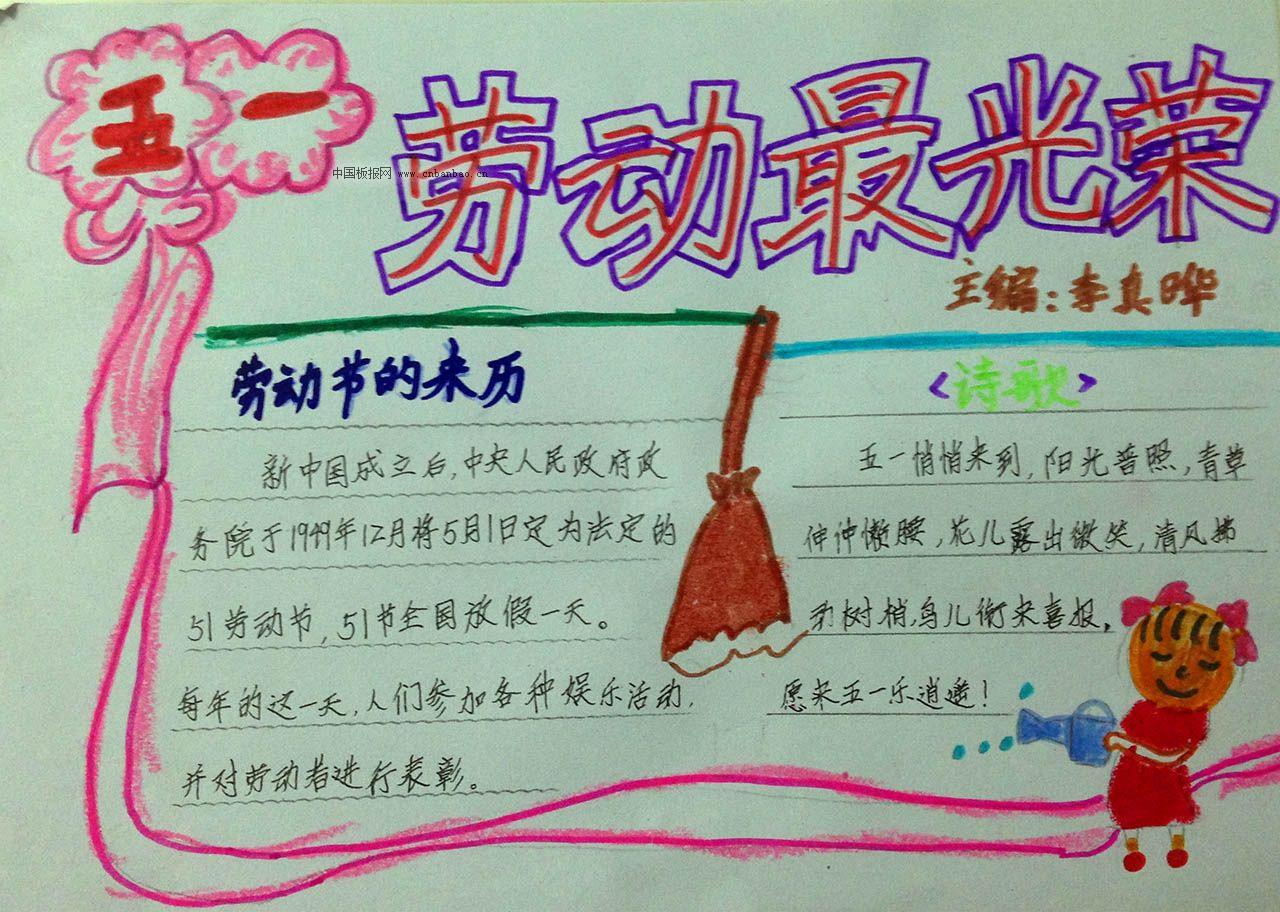 五一
劳动最光荣
中国板报网 www.cnbanbao.cn
主编：李真晔
劳动节的来历
新中国成立后，中央人民政府政
务院于1949年12月将5月1日定为法定的
51劳动节，51节全国放假一天。
每年的这一天，人们参加各种娱乐活动，
并对劳动者进行表彰。
<诗歌>
五一悄悄来到，阳光普照，青草
伸伸懒腰，花儿露出微笑，清风拂
动树梢，鸟儿衔来喜报，
愿来五一乐逍遥！